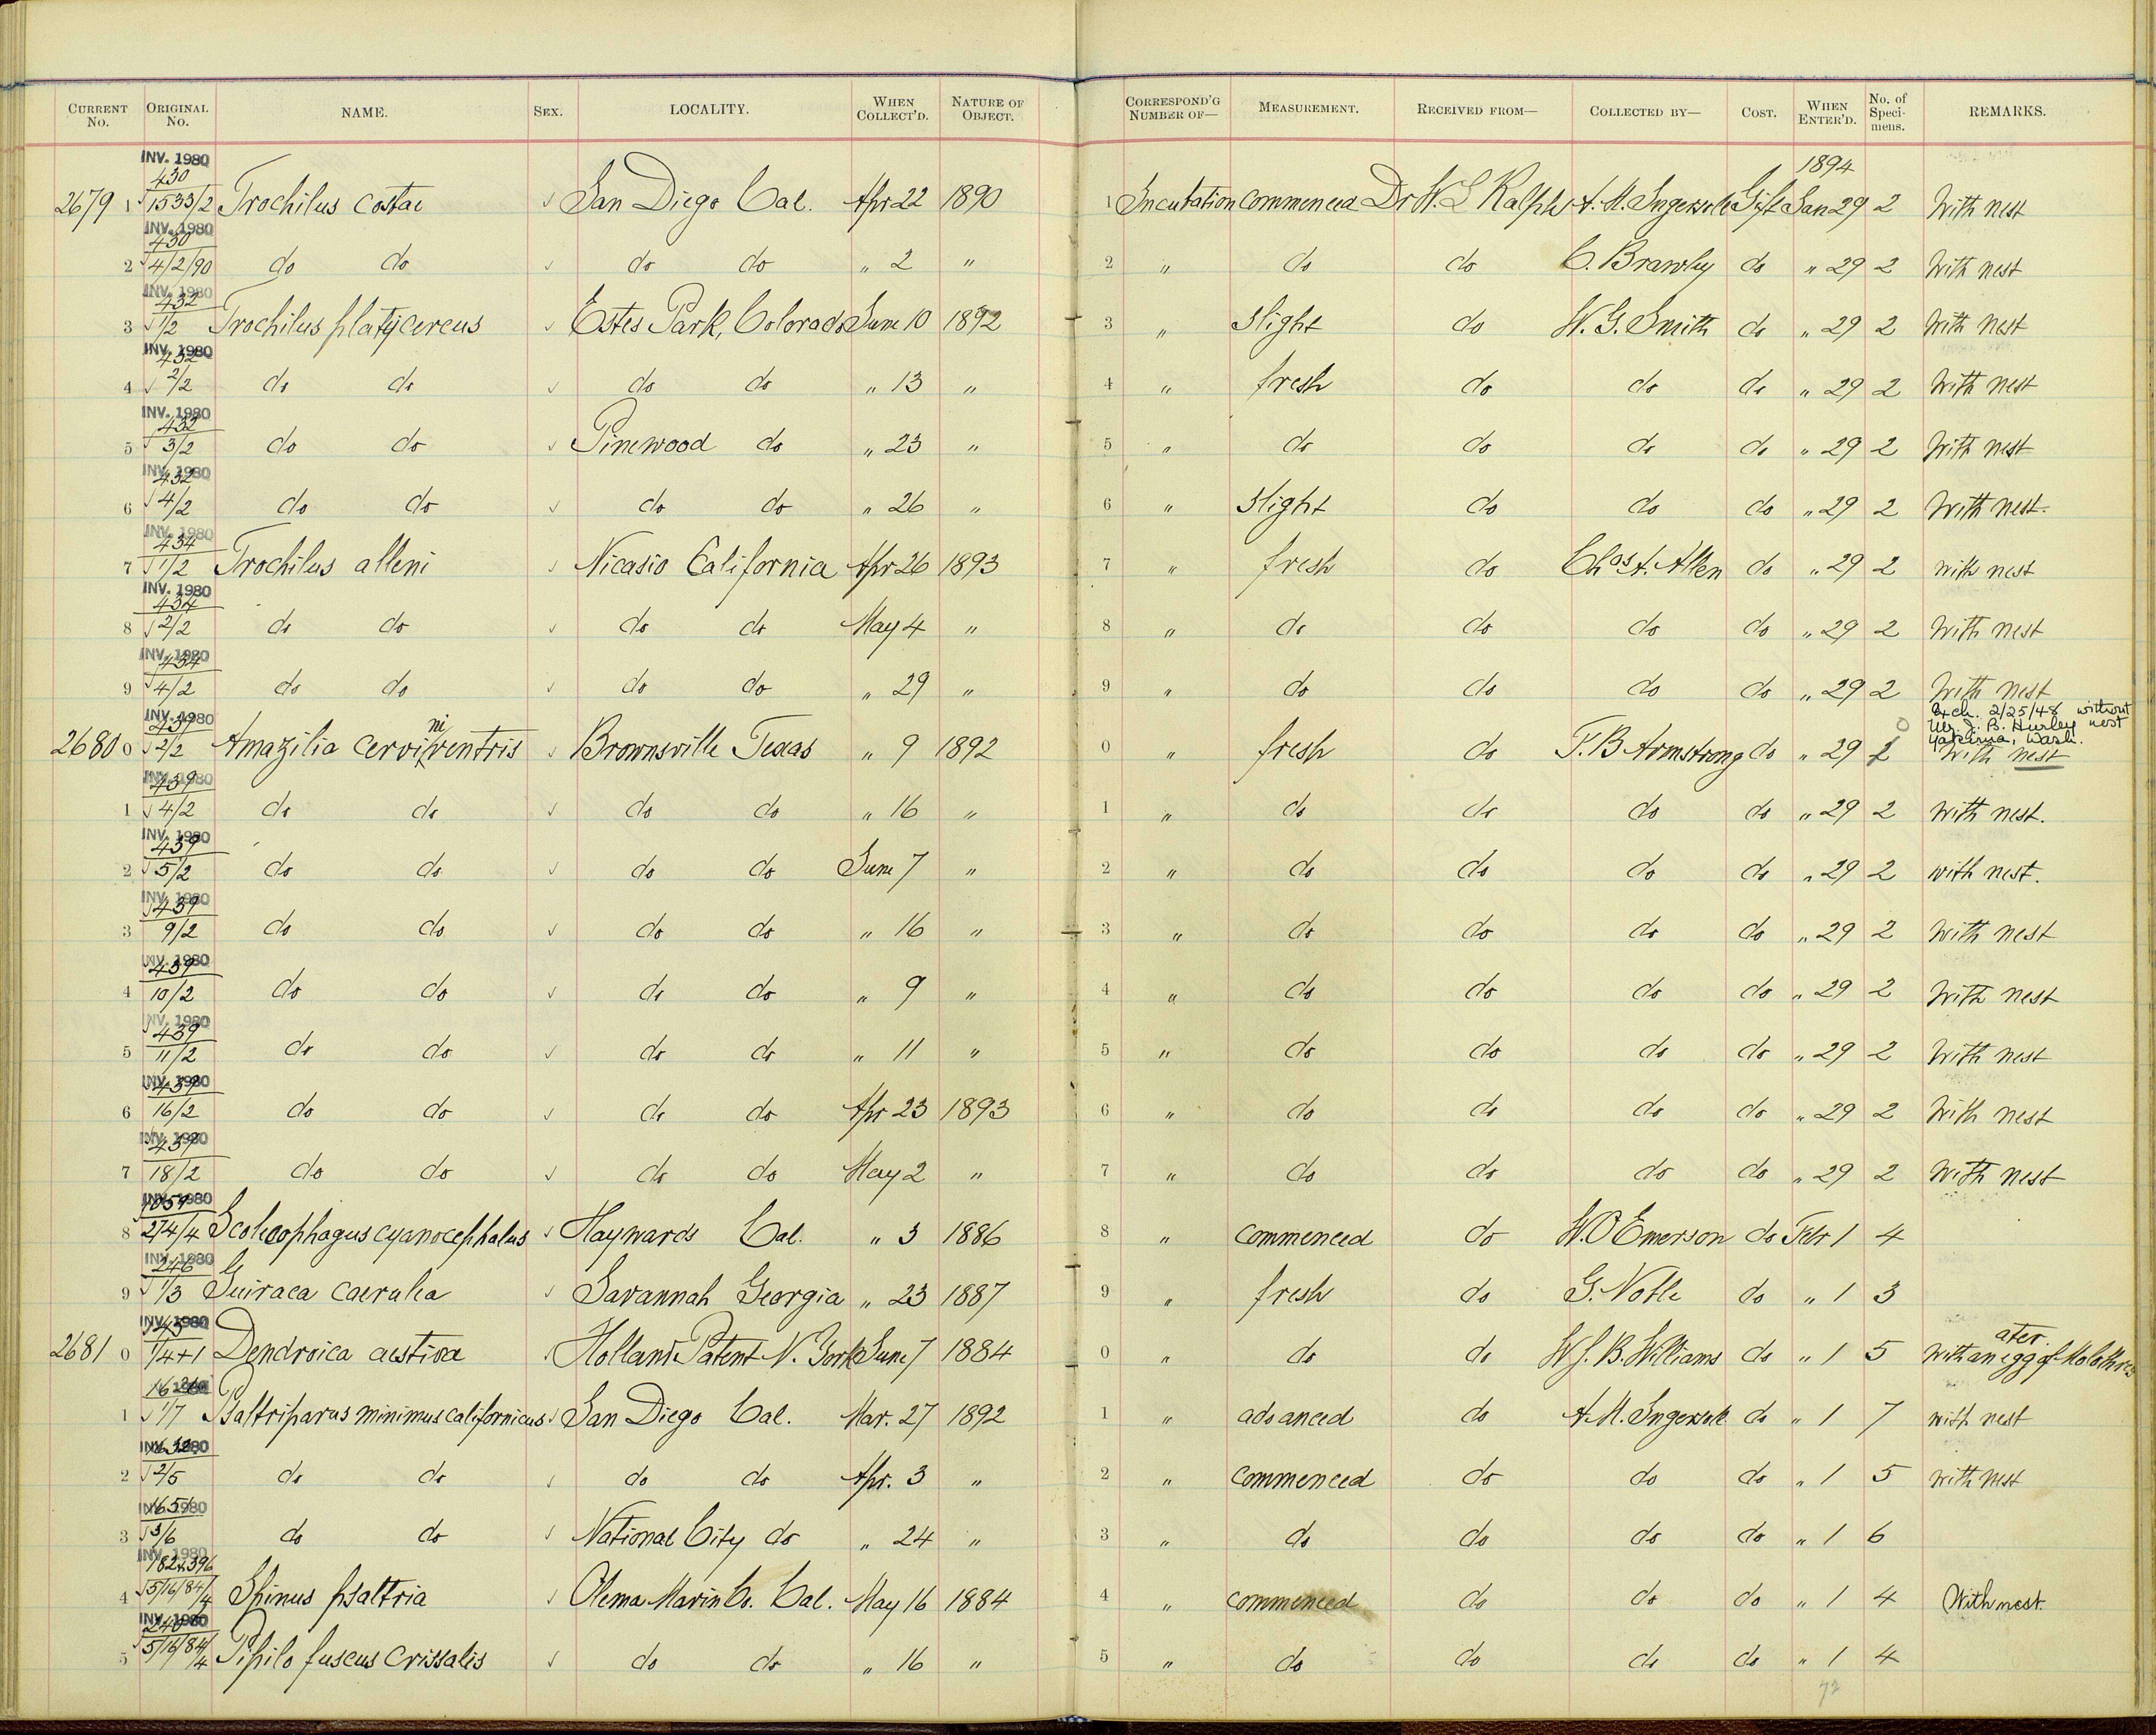 CURRENT No. ORIGINAL No. NAME. SEX. LOCALITY. WHEN COLLECT'D. NATURE OF OBJECT. CORRESPOND'G NUMBER OF— MEASUREMENT. RECEIVED FROM— COLLECTED BY— COST. WHEN ENTER'D. No. of Specimens. REMARKS.
INV. 1980 430 1894
2679 1 √1533/2 Trochilus costae √ San Diego Cal. Apr 22 1890 1 Incubation commenced Dr W. L Ralph A. M. Ingersoll Gift Jan 29 2 With nest
INV. 1980 430
2 √4/2/90 do do √ do do " 2 " 2 " do do C. Brawley do " 29 2 With nest
INV. 1980 432
3 √1/2 Trochilus platycercus √ Estes Park, Colorado June 10 1892 3 " Slight do W. G. Smith do " 29 2 With nest
INV. 1980 432
4 √2/2 do do √ do do " 13 " 4 " fresh do do do " 29 2 With nest
INV. 1980 432
5 √3/2 do do √ Pinewood do " 23 " 5 " do do do do " 29 2 With nest
INV. 1980 432
6 √4/2 do do √ do do " 26 " 6 " Slight do do do " 29 2 With nest.
INV. 1980 434
7 √1/2 Trochilus alleni √ Nicasio California Apr 26 1893 7 " fresh do Chas A. Allen do " 29 2 with nest
INV. 1980 434
8 √2/2 do do √ do do May 4 " 8 " do do do do " 29 2 With nest
INV. 1980 434
9 √4/2 do do √ do do " 29 " 9 " do do do do " 29 2 With nest
INV. 1980 439 ni Exch. 2/25/48 without
Mr. J. B. Hurley nest
Yakima, Wash.
2680 0 √2/2 Amazilia cerviventris √ Brownsville Texas " 9 1892 0 " fresh do F. B Armstrong do " 29 0 With nest
INV. 1980 439
1 √4/2 do do √ do do " 16 " 1 " do do do do " 29 2 With nest.
INV. 1980 439
2 √5/2 do do √ do do June 7 " 2 " do do do do " 29 2 with nest.
INV. 1980 439
3 9/2 do do √ do do " 16 " 3 " do do do do " 29 2 With nest
INV. 1980 439
4 10/2 do do √ do do " 9 " 4 " do do do do " 29 2 With nest
INV. 1980 439
5 11/2 do do √ do do " 11 " 5 " do do do do " 29 2 With nest
INV. 1980 439
6 16/2 do do √ do do Apr 23 1893 6 " do do do do " 29 2 With nest
INV. 1980 439
7 18/2 do do √ do do May 2 " 7 " do do do do " 29 2 With nest
INV. 1980
8 274/4 Scolecophagus cyanocephalus √ Haywards Cal. " 3 1886 8 " commenced do W. O Emerson do Feb 1 4
INV. 1980 246
9 √1/3 Guiraca caerulea √ Savannah Georgia " 23 1887 9 " fresh do G. Noble do " 1 3
INV. 1980 ater.
2681 0 1/4+1 Dendroica aestiva Holland Patent N. York June 7 1884 0 " do do W. J. B. Williams do " 1 5 with an egg of Molothrus
1 √1/7 Psaltriparus minimus californicus √ San Diego Cal. Mar. 27 1892 1 " advanced do A. M. Ingersoll do " 1 7 with nest
INV. 1980
2 √2/5 do do √ do do Apr. 3 " 2 " commenced do do do " 1 5 with nest
INV. 1980
3 √3/6 do do √ National City do " 24 " 3 " do do do do " 1 6
INV. 1980 182+396
4 √5/16/84/4 Spinus psaltria √ Olema Marin Co. Cal. May 16 1884 4 " commenced do do do " 1 4 With nest.
INV. 1980
5 √5/16/84/4 Pipilo fuscus crissalis √ do do " 16 " 5 " do do do do " 1 4
72